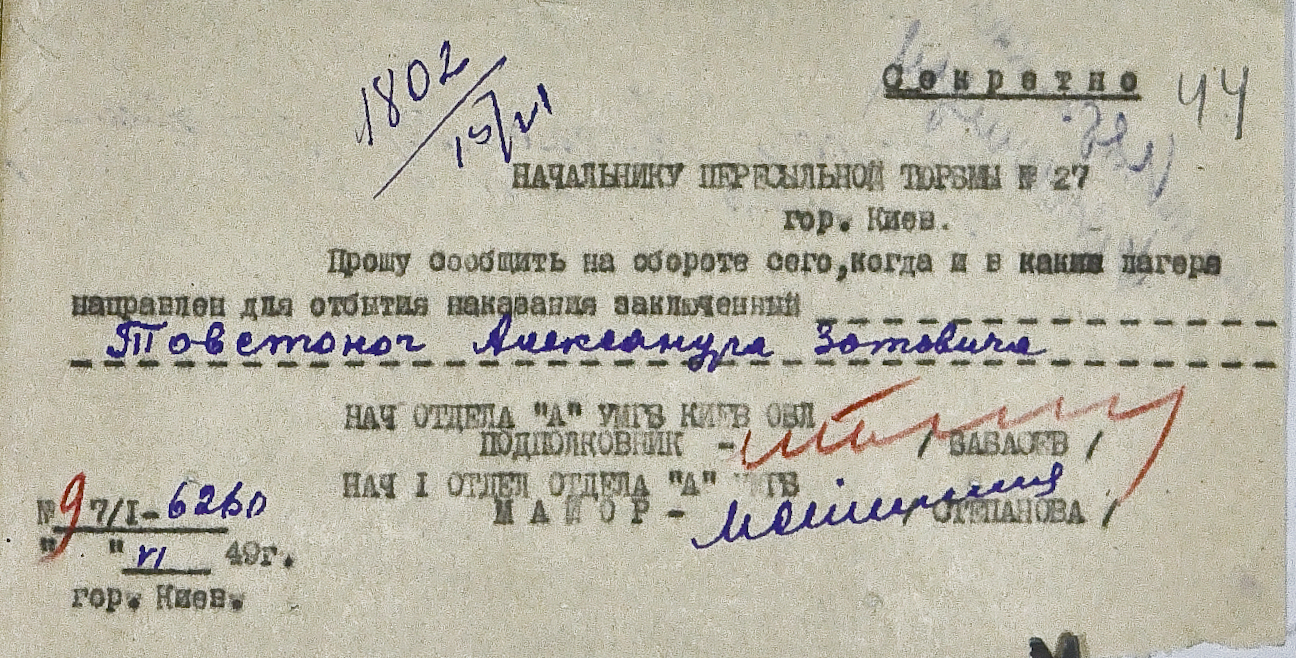 1802
15/VI
Секретно 44
НАЧАЛЬНИКУ ПЕРЕСЫЛЬНОЙ ТЮРЬМЫ № 27
гор. Киев.
Прошу сообщить на обороте сего,когда и в какие лагеря
направлен для отбытия наказания заключенный
Товстоног Александра Зотовича
НАЧ ОТДЕЛА "А" УМГБ КИЕВ ОБЛ
ПОДПОЛКОВНИК - / /
НАЧ I ОТДЕЛ ОТДЕЛА "А" УМГБ
МАЙОР - / СТЕПАНОВА /
№ 7/I-6260
"9" VI 49г.
гор. Киев.